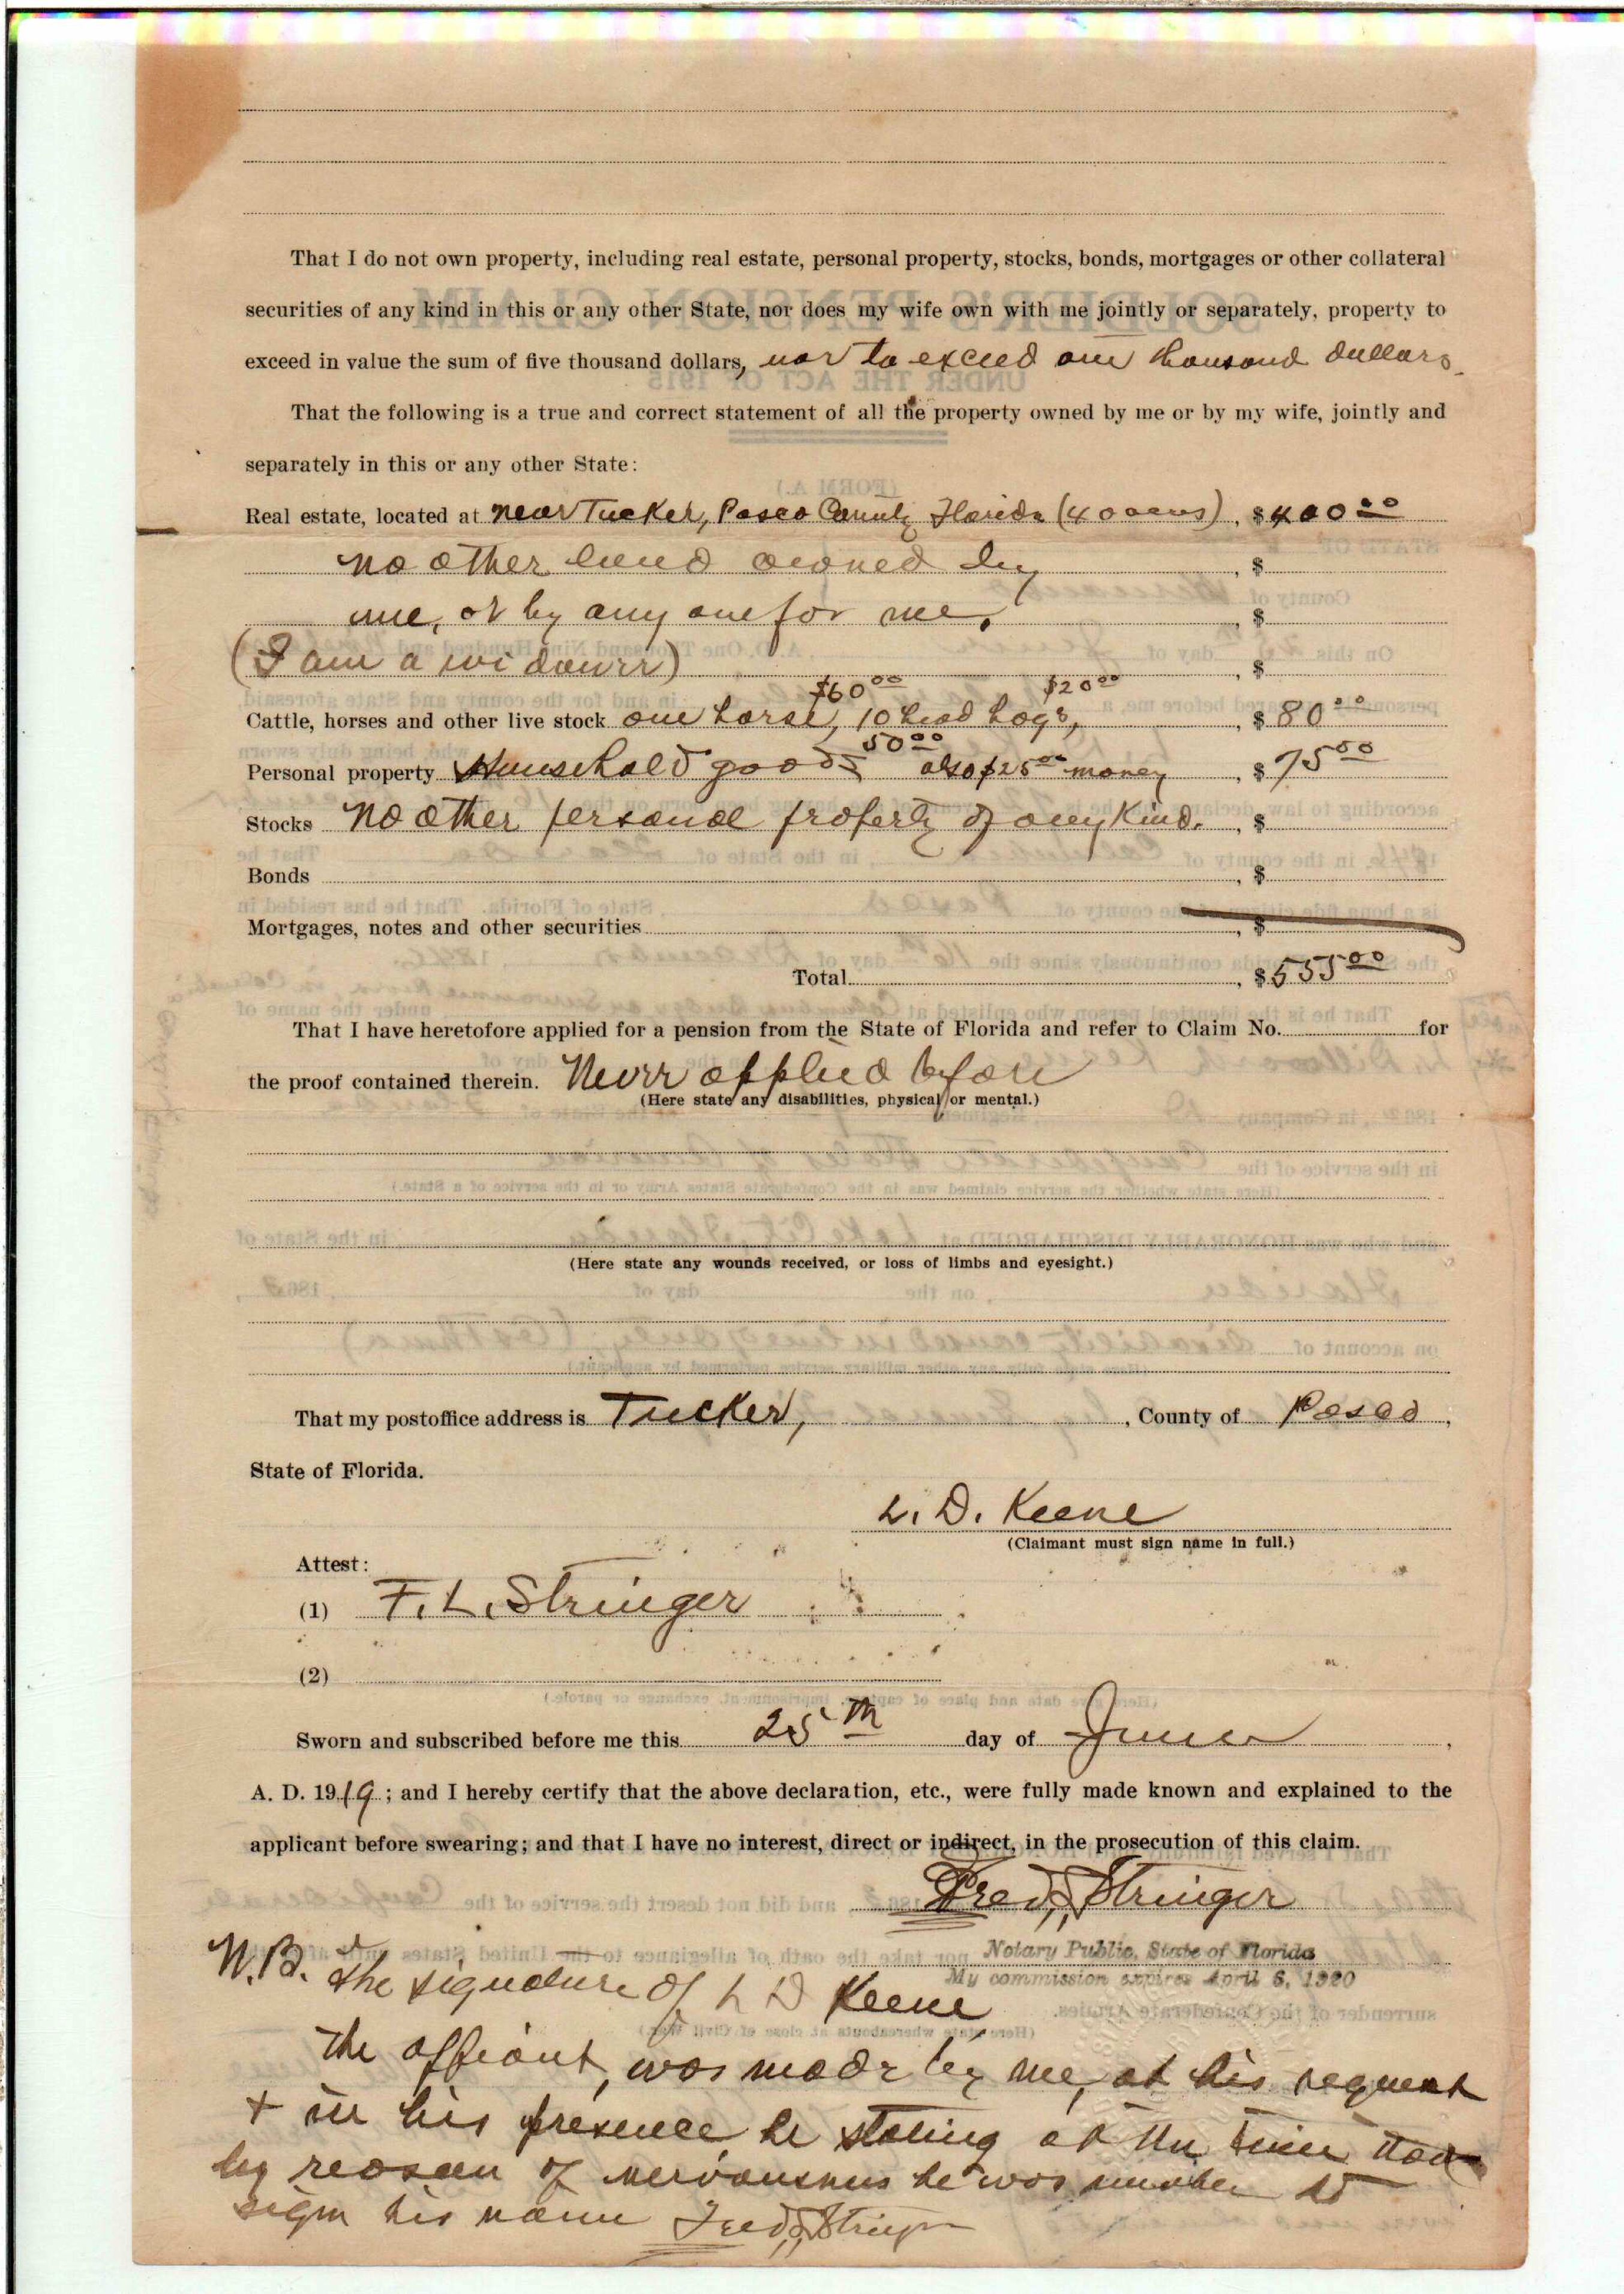 That I do not own property, including real estate, personal property, stocks, bonds, mortgages or other collateral
securities of any kind in this or any other State, nor does my wife own with me jointly or separately, property to
exceed in value the sum of five thousand dollars, nor to exceed one thousand dollars.
That the following is a true and correct statement of all the property owned by me or by my wife, jointly and
separately in this or any other State:
Real estate, located at near Tucker, Pasco County Florida (40 acres), $400 00
no other land owned by , $
me, or by any one for me. , $
(I am a widower) , $
$60 00 $20 00
Cattle, horses and other live stock one horse, 10 head hogs, , $ 80 00
50 00
Personal property Household goods also $25 00 money , $ 75 00
Stocks no other personal property of any kind. , $
Bonds , $
Mortgages, notes and other securities , $
Total , $555 00
That I have heretofore applied for a pension from the State of Florida and refer to Claim No. for
the proof contained therein. Never applied before
(Here state any disabilities, physical or mental.)
(Here state any wounds received, or loss of limbs and eyesight.)
That my postoffice address is Tucker, , County of Pasco ,
State of Florida.
L. D. Keene
(Claimant must sign name in full.)
Attest:
(1) F. L. Stringer
(2)
Sworn and subscribed before me this 25th day of June ,
A. D. 1919; and I hereby certify that the above declaration, etc., were fully made known and explained to the
applicant before swearing; and that I have no interest, direct or indirect, in the prosecution of this claim.
Fred L. Stringer
Notary Public, State of Florida
My commission expires April 6, 1920
N.B. The signature of L D Keene
the affiant, was made by me, at his request
+ in his presence he stating at the time that
by reason of nervousness he was unable to
sign his name Fred L. Stringer